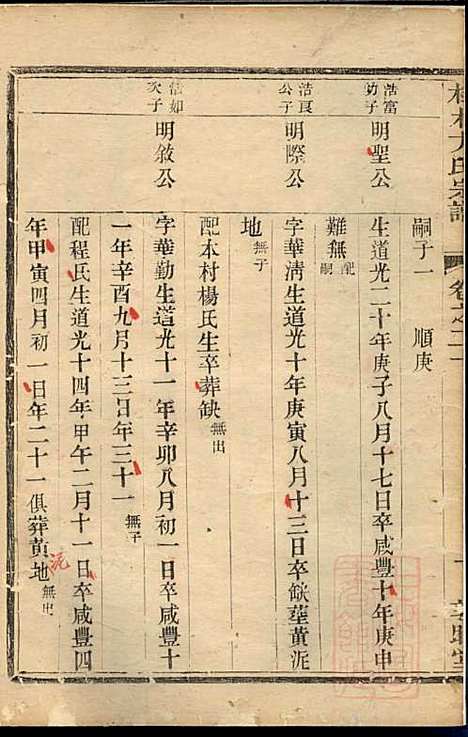 嗣子一　順庚
浩富
幼子
明聖公
生道光二十年庚子八月十七日卒咸豐十年庚申
難無配
嗣
浩良
公子
明際公
字華淸生道光十年庚寅八月十三日卒缺葬黃泥
地無子
配本村楊氏生卒葬缺無出
浩如
次子
明敘公
字華勤生道光十一年辛卯八月初一日卒咸豐十
一年辛酉九月十三日年三十一無子
配程氏生道光十四年甲午二月十一日卒咸豐四
年甲寅四月初一日年二十一俱葬黃泥地無出